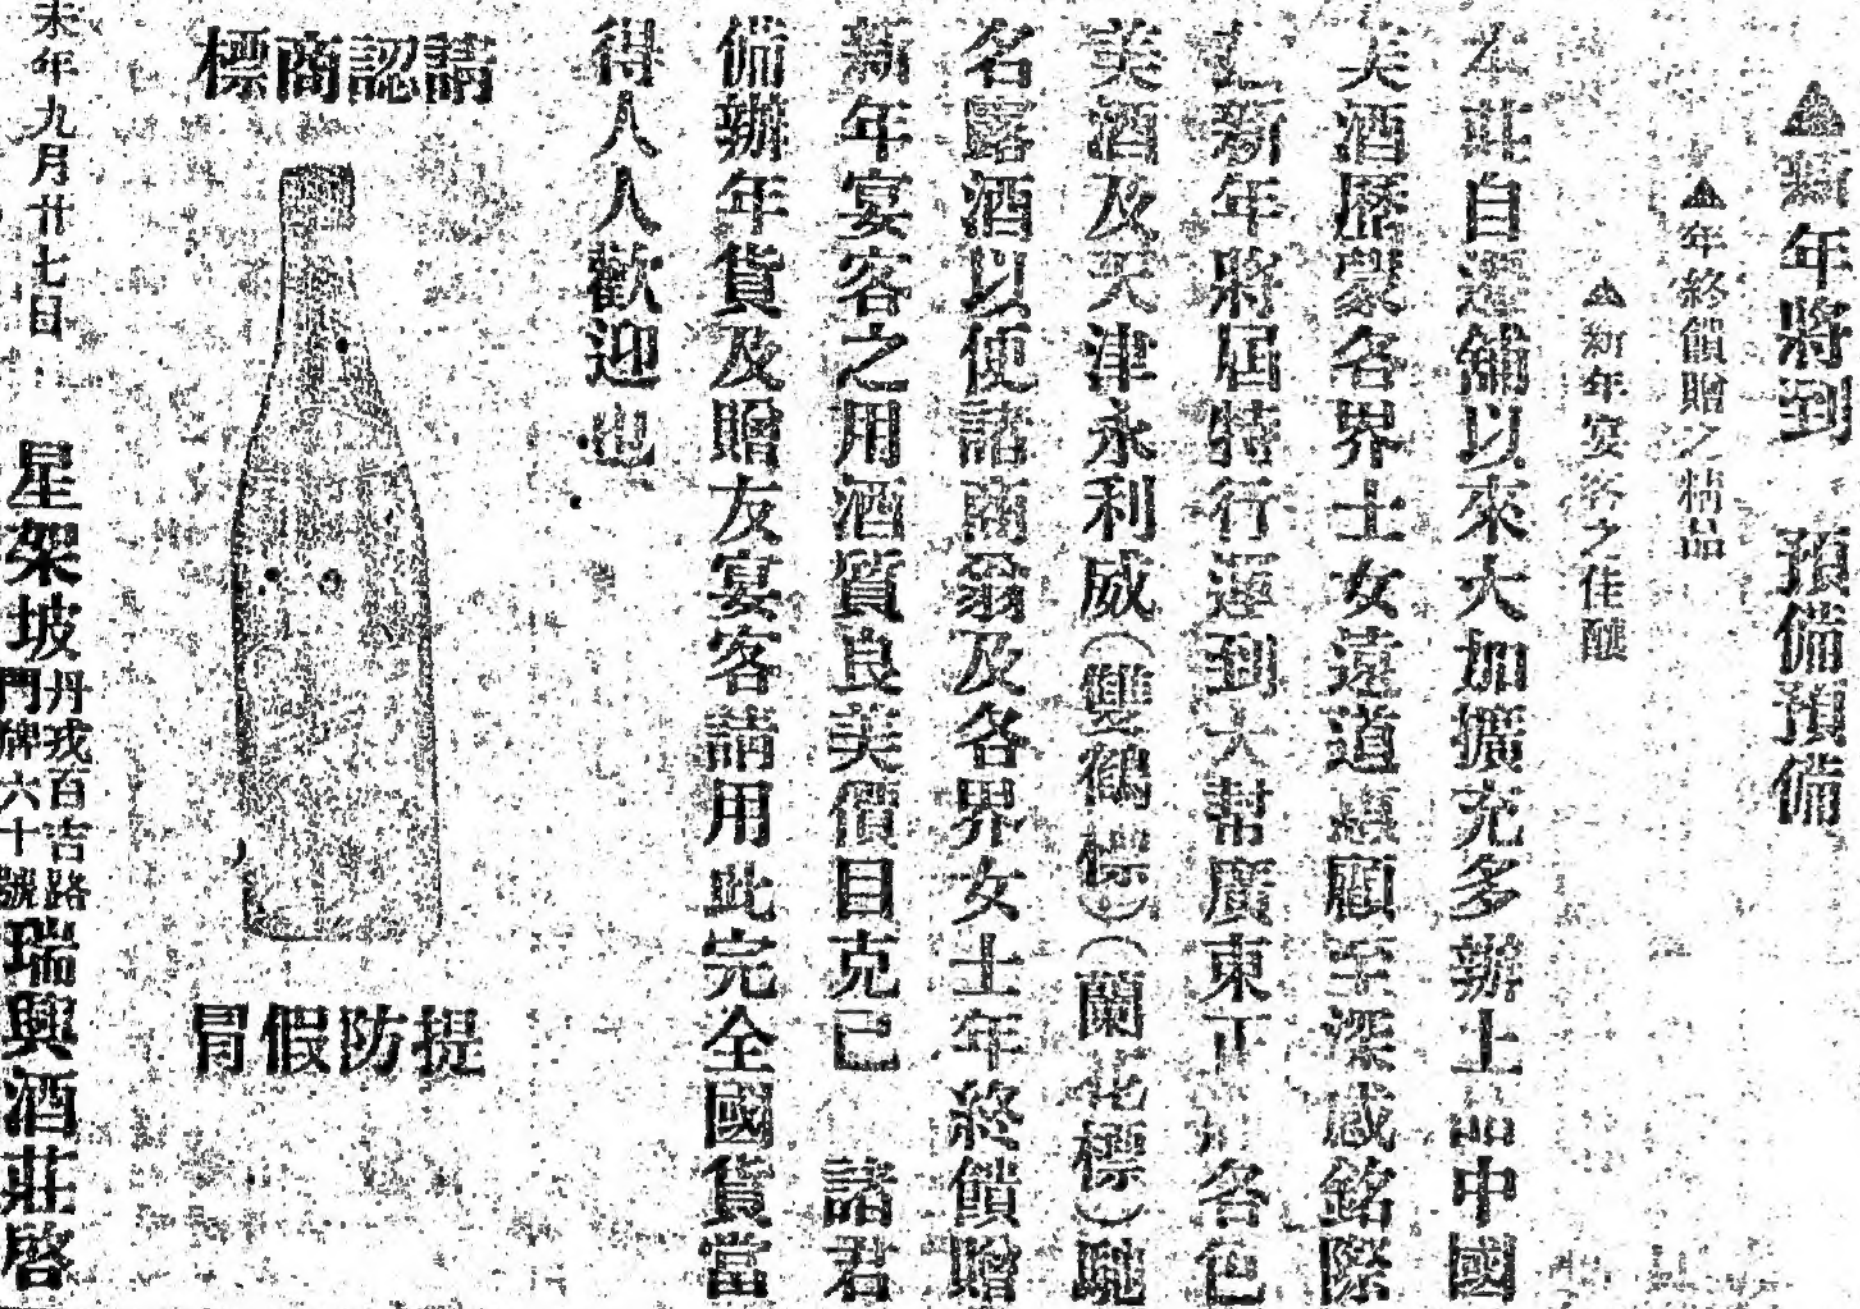 ▲新年將到　預備預備
▲年終餽贈之精品
▲新年宴客之佳釀
本莊自遷舖以來大加擴充多辦上品中國
美酒歷蒙名界士女遠道惠顧至深感銘際
此新年將屆特行運到大幫廣東正莊名色
美酒及天津永利威(雙鶴標)(蘭花標)馳
名露酒以便諸商翁及各界女士年終餽贈
新年宴客之用酒貨良美價目克己　諸君
備辦年貨及贈友宴客請用此完全國貨當
得人人歡迎也
請認商標
提防假冒
未年九月廿七日
星架坡丹戎百吉路門牌六十號瑞興酒莊啓